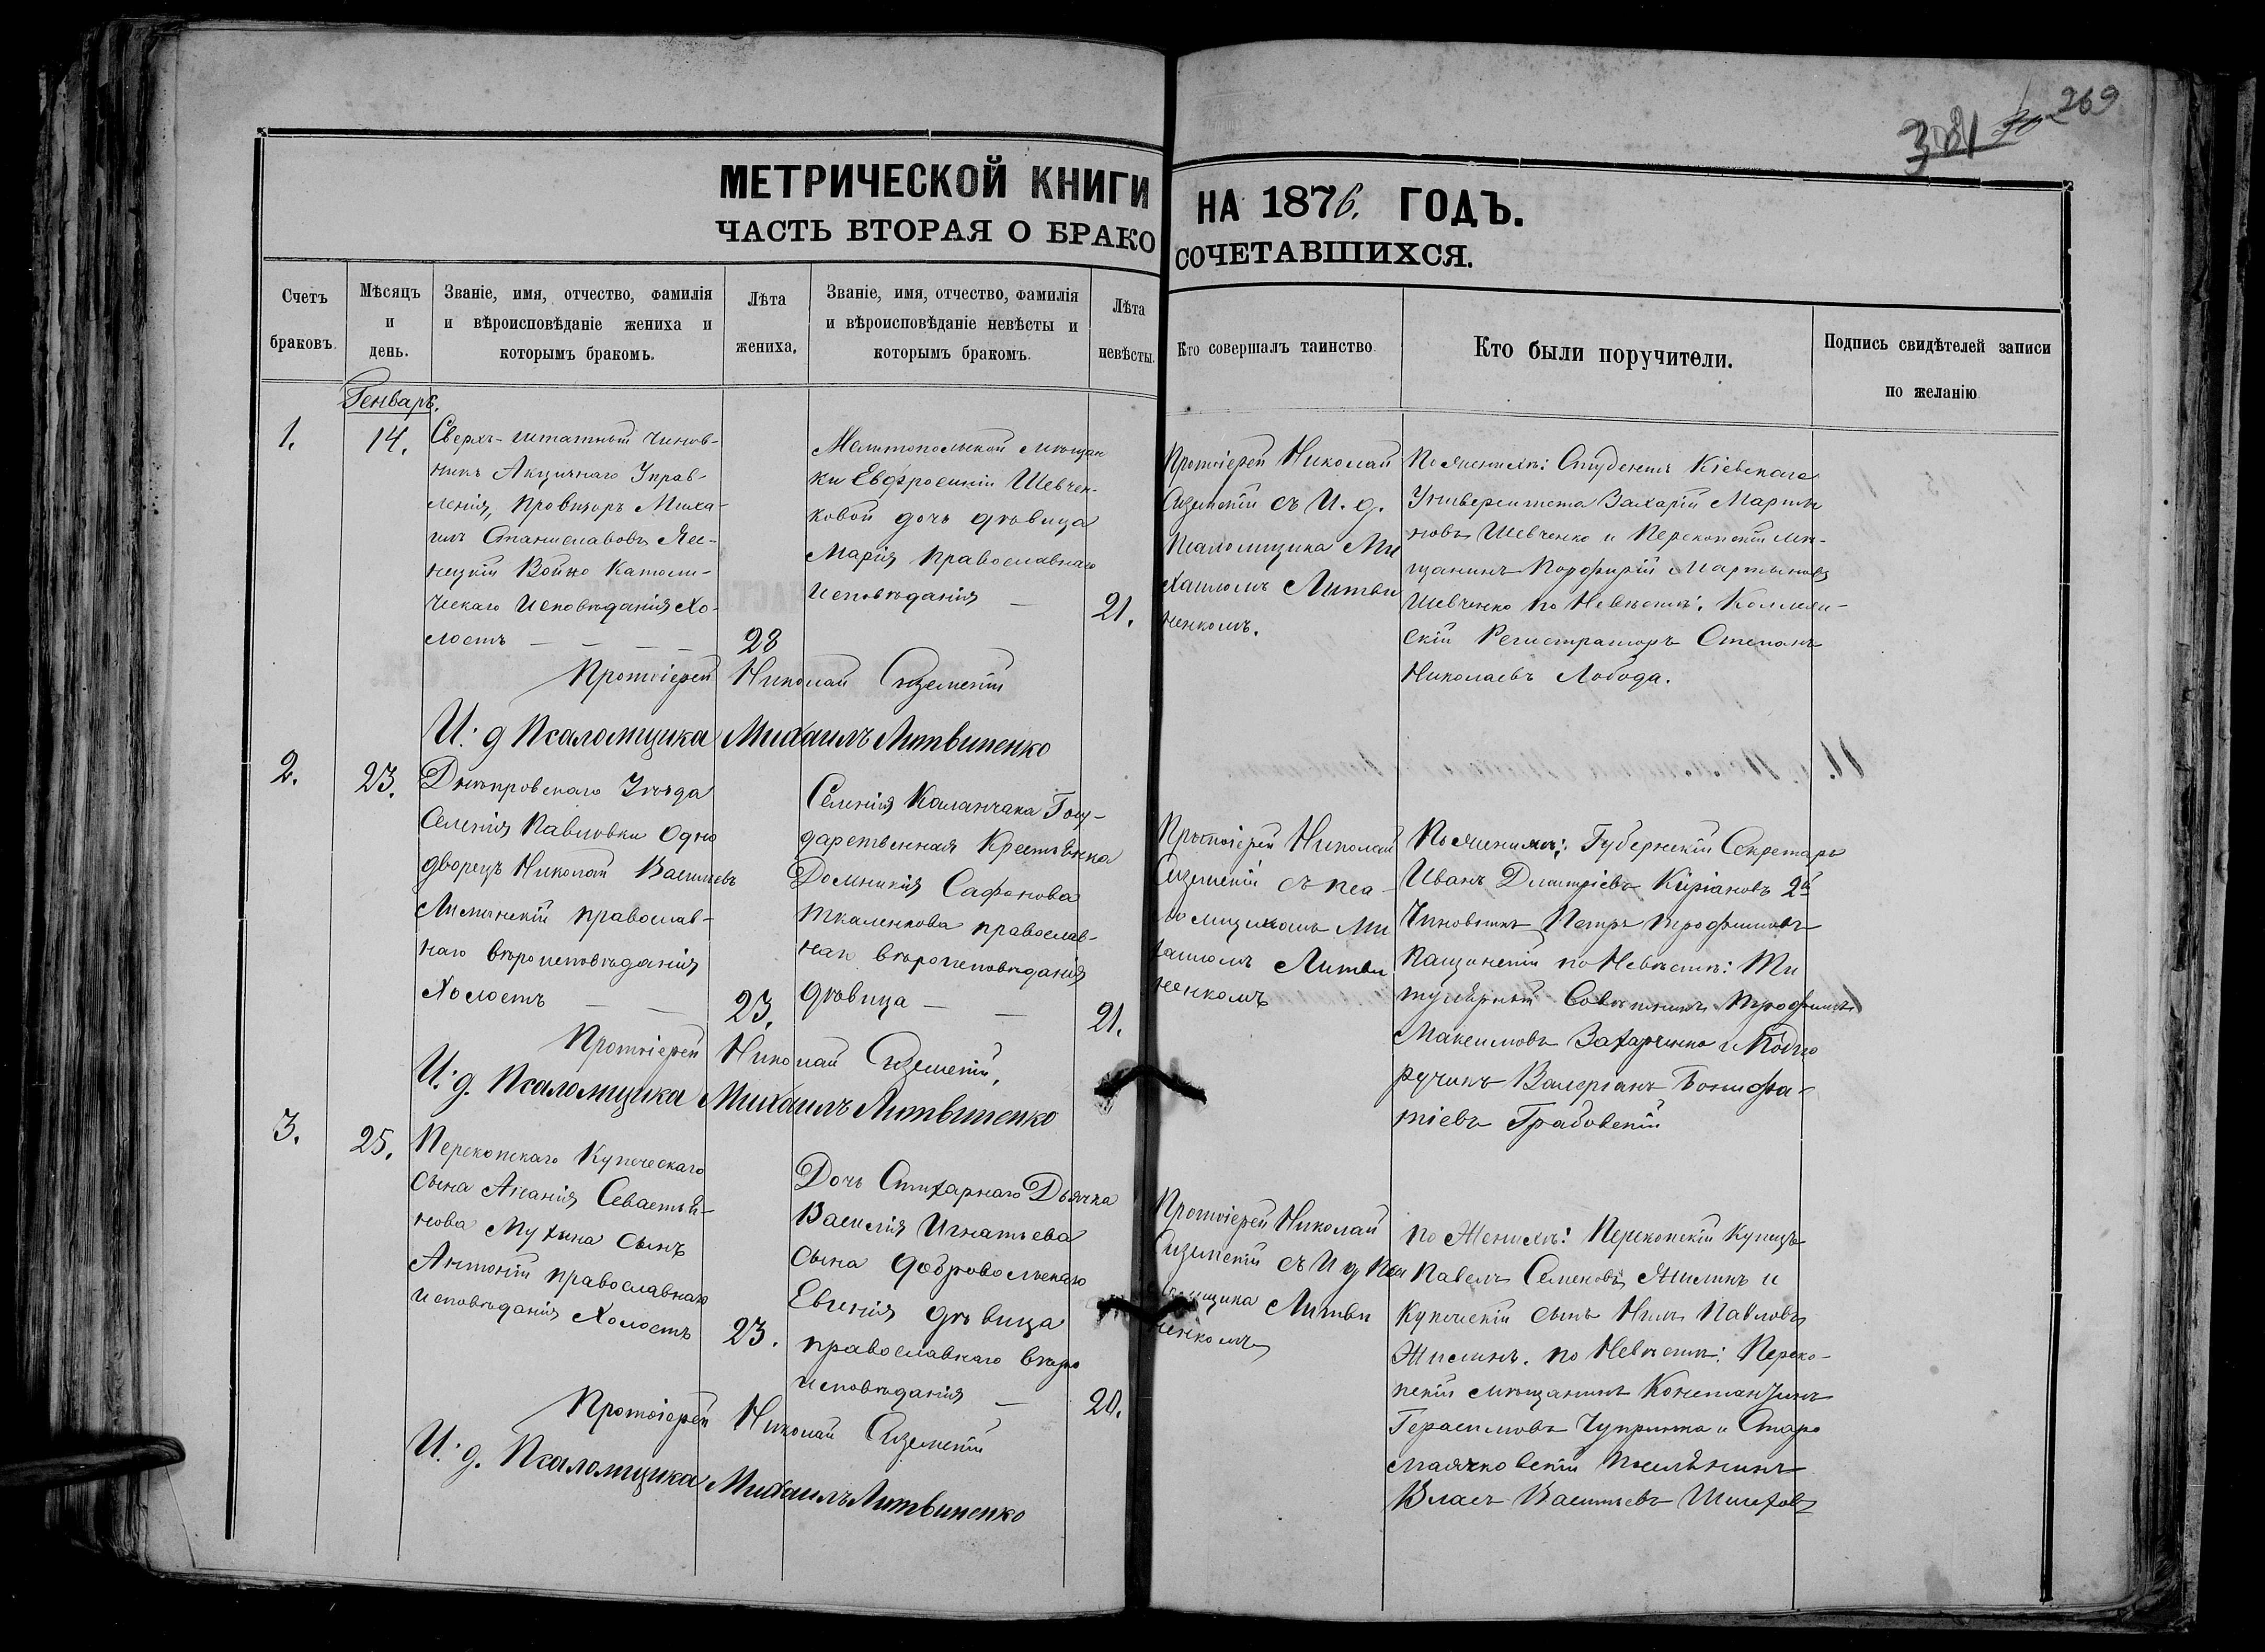 381 269
МЕТРИЧЕСКОЙ КНИГИ НА 1876. ГОДЪ.
ЧАСТЬ ВТОРАЯ О БРАКОСОЧЕТАВШИХСЯ.
Счетъ браковъ.
Мѣсяцъ и день.
Званіе, имя, отчество, фамилія и вѣроисповѣданіе жениха и которымъ бракомъ.
Лѣта жениха.
Званіе, имя, отчество, фамилія и вѣроисповѣданіе невѣсты и которымъ бракомъ.
Лѣта невѣсты.
Кто совершалъ таинство.
Кто были поручители.
Подпись свидѣтелей записи по желанію
Генварь.
1.
14.
Сверхъ-штатный чинов-
никъ Акцизнаго Управ-
ленія, провизоръ Миха-
илъ Станиславовъ
Войно Католи-
ческаго исповѣданія хо-
лостъ
28
Мелитопольской мѣщан
ки Евфросиніи Шевчен-
ковой дочь дѣвица
Марія православнаго
исповѣданія
21.
Протоіерей Николай
съ И. д.
Псаломщика Ми
хаиломъ Литви
ненкомъ.
По женихѣ: Студентъ Кіевскаго
Университета Захарій Марты
новъ Шевченко и Перекопскій мѣ-
щанинъ Порфирій Мартыновъ
Шевченко по Невѣстѣ: Коллеж-
скій Регистраторъ Степанъ
Николаевъ Лобода.
Протоіерей Николай
И. д Псаломщика Михаилъ Литвиненко
2.
23.
Днѣпровскаго Уѣзда
Селенія Павловки Одно
дворецъ Николай Васильевъ
православ-
наго вѣроисповѣданія
Холостъ
23.
Селенія Каланчака Госу-
дарственная Крестьянка
Домникія Сафонова
Ткаленкова православ-
наго вѣроисповѣданія
дѣвица
21.
Протоіерей Николай
съ пса-
ломщикомъ Ми
хаиломъ Литви
ненкомъ
По женихѣ: Губернскій Секретарь
Иванъ Дмитріевъ Киріановъ 2й
Чиновникъ Петръ Трофимовъ
по Невѣстѣ: Ти
тулярный Совѣтникъ Трофимъ
Максимовъ Захарченко и Подпо
ручикъ Валеріанъ Бонифа-
тіевъ Грабовскій
Протоіерей Николай
И. д. Псаломщика Михаилъ Литвиненко
3.
25.
Перекопскаго Купеческаго
сына Анания Севастья-
нова Мухина сынъ
Антоній православнаго
исповѣданія Холостъ
23.
Дочь Стихарнаго Дьячка
Василія Игнатьева
сына Добровольскаго
Евгенія дѣвица
православнаго вѣро
исповѣданія
20.
Протоіерей Николай
съ И д Пса
ломщика Литви
ненкомъ
по Женихѣ: Перекопскій Купецъ
Павелъ Семеновъ Жилинъ и
Купеческій сынъ Нилъ Павловъ
Жилинъ. по Невѣстѣ: Переко-
пскій мѣщанинъ Константинъ
Герасимовъ Чупринка и Старо
маячковскій поселянинъ
Власъ Васильевъ
Протоіерей Николай
И. д. Псаломщика Михаилъ Литвиненко